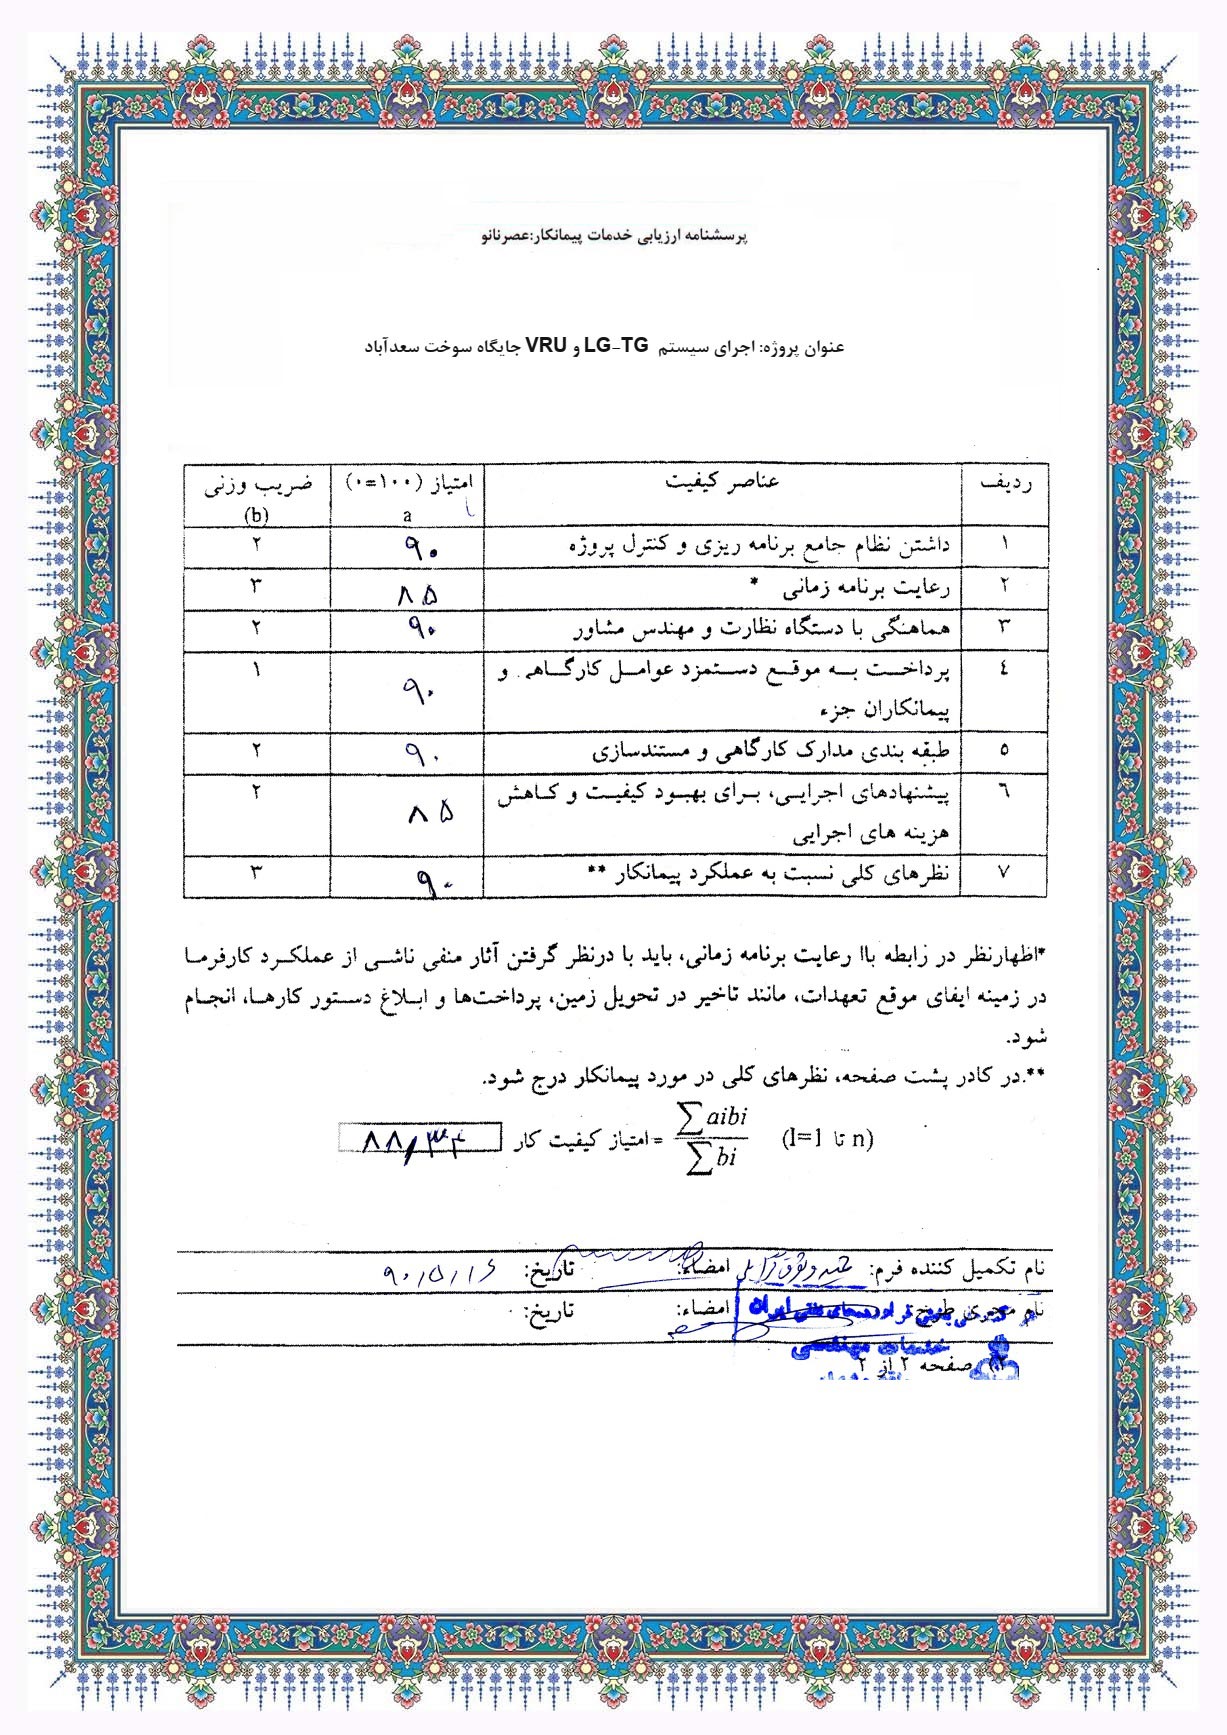 پرسشنامه ارزیابی خدمات پیمانکار:عصرنانو
عنوان پروژه: اجرای سیستم LG-TG و VRU جایگاه سوخت سعدآباد
ردیف عناصر کیفیت امتیاز (۱۰۰=۰) ضریب وزنی
a (b)
۱ داشتن نظام جامع برنامه ریزی و کنترل پروژه ۹۰ ۲
۲ رعایت برنامه زمانی * ۸۵ ۳
۳ هماهنگی با دستگاه نظارت و مهندس مشاور ۹۰ ۲
٤ پرداخت به موقع دستمزد عوامل کارگاهی و ۹۰ ۱
پیمانکاران جزء
٥ طبقه بندی مدارک کارگاهی و مستندسازی ۹۰ ۲
٦ پیشنهادهای اجرایی، برای بهبود کیفیت و کاهش ۸۵ ۲
هزینه های اجرایی
۷ نظرهای کلی نسبت به عملکرد پیمانکار ** ۹۰ ۳
*اظهارنظر در رابطه باا رعایت برنامه زمانی، باید با درنظر گرفتن آثار منفی ناشی از عملکرد کارفرما
در زمینه ایفای موقع تعهدات، مانند تاخیر در تحویل زمین، پرداخت‌ها و ابلاغ دستور کارها، انجام
شود.
**.در کادر پشت صفحه، نظرهای کلی در مورد پیمانکار درج شود.
(I=1 تا n) ∑aibi / ∑bi = امتیاز کیفیت کار
نام تکمیل کننده فرم: امضاء: تاریخ: ۹۰/۵/۱۶
نام مجری طرح امضاء: تاریخ:
صفحه ۲ از ۲